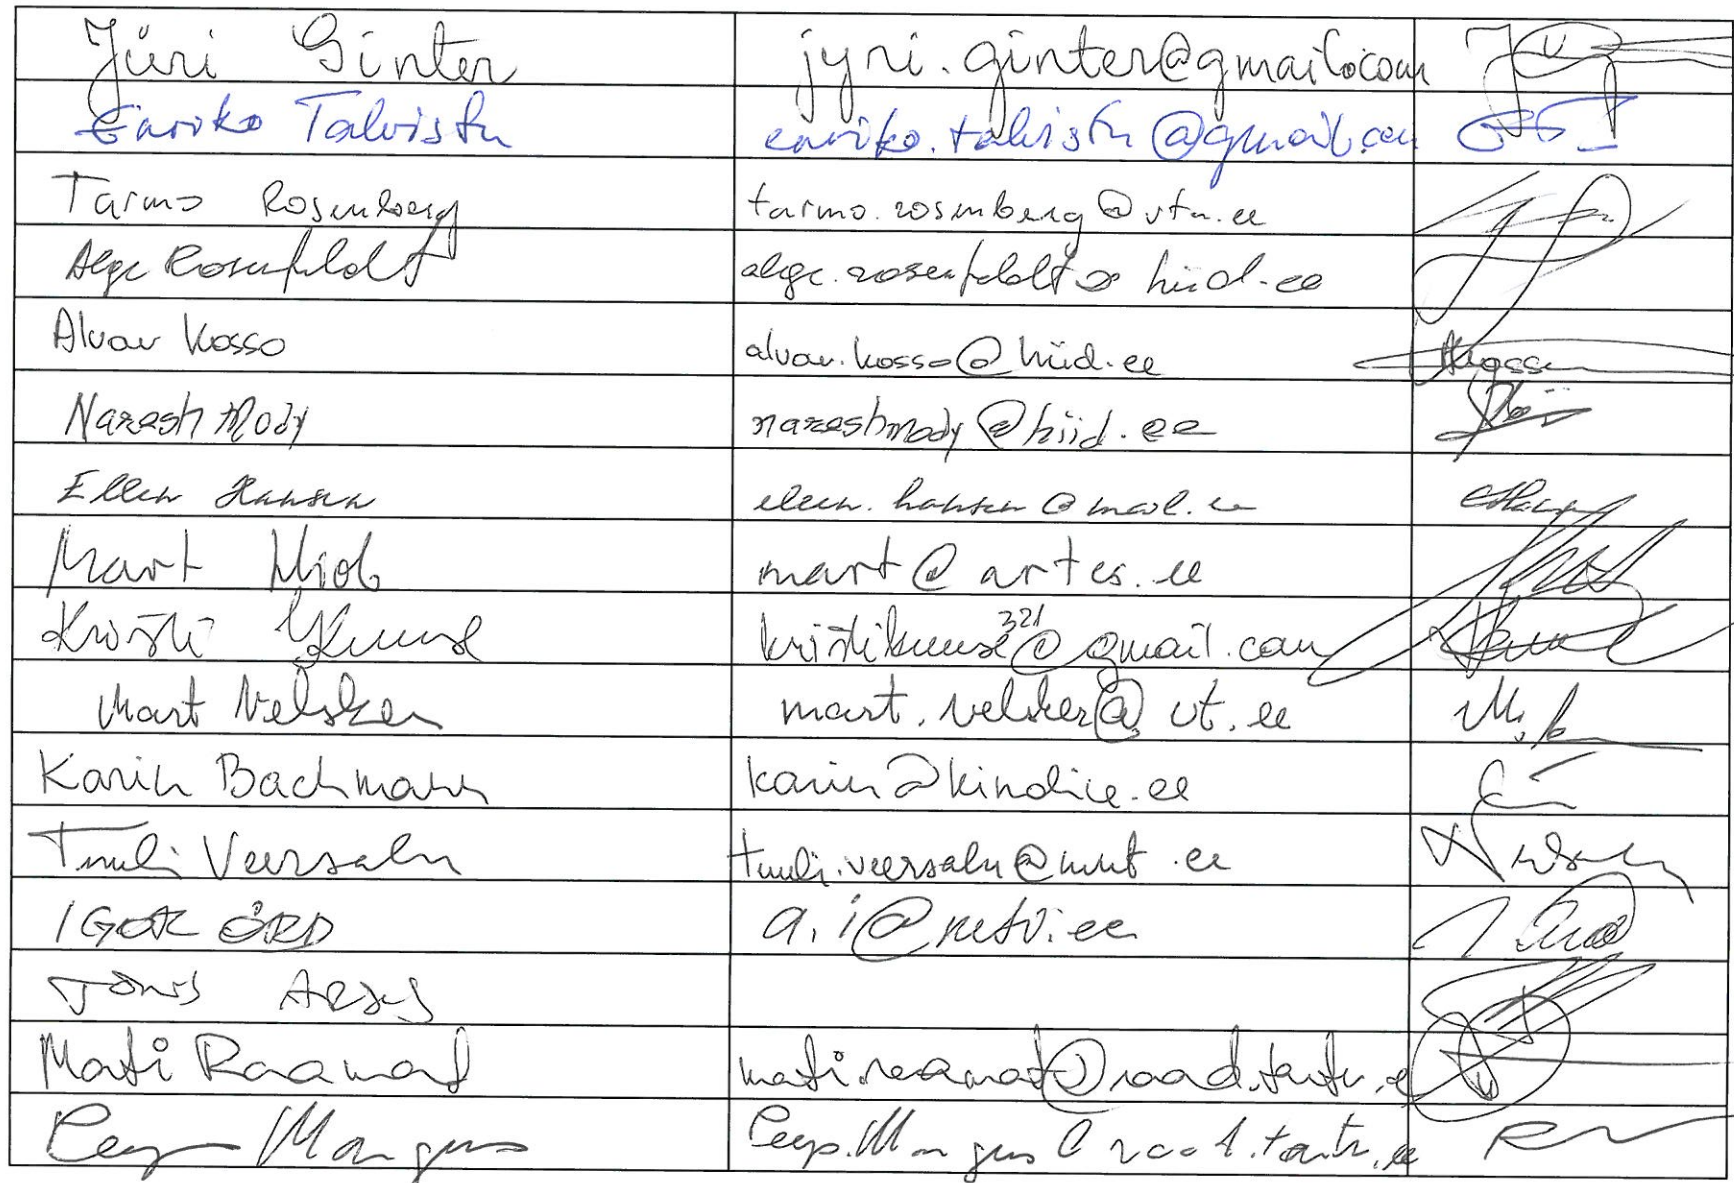 Jüri Ginter jyri.ginter@gmail.com
Eariko Talvistu eariko.talvistu@gmail.com
Tarmo Rosenberg tarmo.rosenberg@vtn.ee
Alge Rosenfeldt alge.rosenfeldt@hiid.ee
Alvar Kosso alvar.kosso@hiid.ee
Naresh Mody nareshmody@hiid.ee
Ellen Hansen ellen.hansen@mail.ee
Mart Hiob mart@artes.ee
Kristi Kuuse kristikuuse321@gmail.com
Mart Velsker mart.velsker@ut.ee
Karin Bachmann karin@kindice.ee
Tuuli Veersalu tuuli.veersalu@mnt.ee
IGOR ÖRD a.i@netvi.ee
Tõnis ARJUS
Mati Raamat mati.raamat@raad.tartu.ee
Peep Margus Peep.Margus@raad.tartu.ee